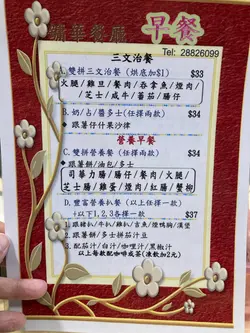 早餐
Tel: 28826099
三文治餐
A. 雙拼三文治餐 (烘底加$1) $33
火腿/雞旦/餐肉/吞拿魚/煙肉/
芝士/咸牛/蕃茄/腸仔
B. 奶/占醬多士(任擇兩款) $34
跟薯仔什果沙律
營養早餐
C. 雙拼營養餐 (任擇兩款) $34
跟薯餅/油包/多士
司華力腸/腸仔/餐肉/火腿/
芝士腸/雞蛋/煙肉/紅腸/蟹柳
D. 豐富營養扒餐 (以上任擇一款)
+以下1,2,3各擇一款 $37
1. 跟豬扒/牛扒/雞扒/吉魚/煙鴨胸/漢堡
2. 跟薯餅/多士拼茄汁豆
3. 配茄汁/白汁/咖喱汁/黑椒汁
以上每款配咖啡或茶(凍飲加2元)